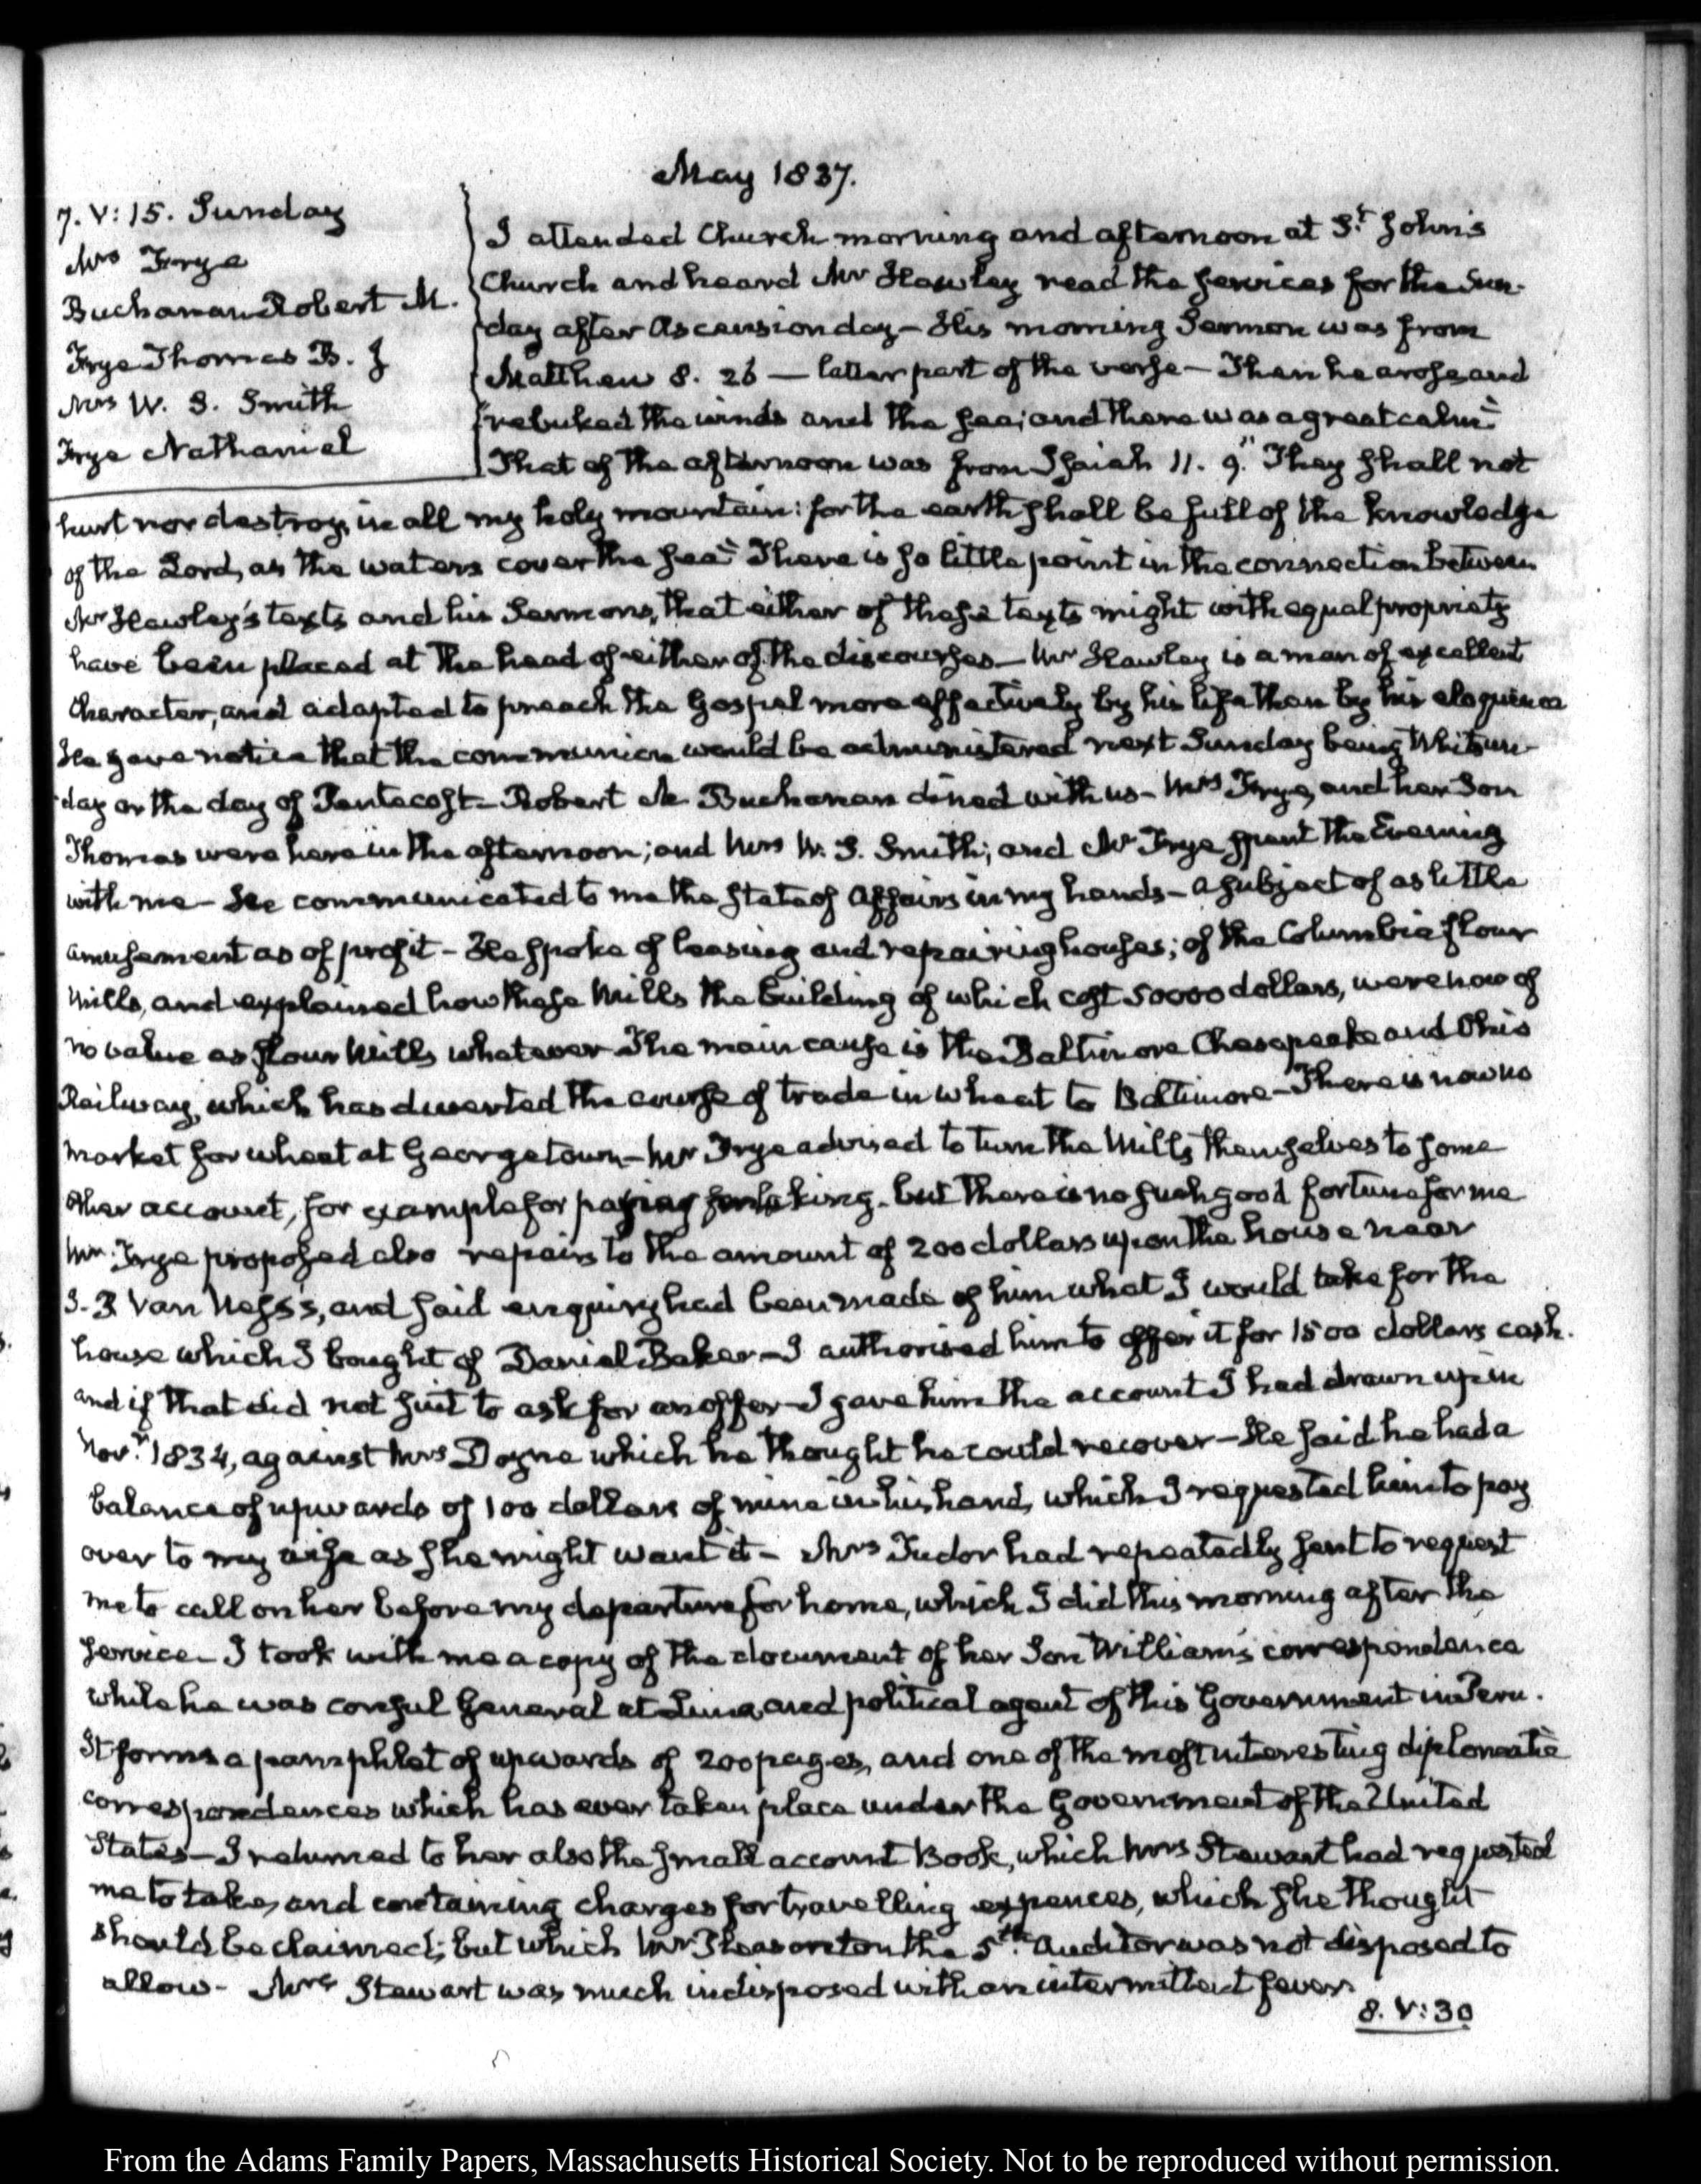 May 1837.
7. V: 15. Sunday
Mrs Frye
Buchanan Robert M.
Frye Thomas B. J
Mrs W. S. Smith
Frye Nathaniel
I attended Church morning and afternoon at St. John's
Church and heard Mr Hawley read the services for the Sun-
day after Ascension day — His morning Sermon was from
Matthew 8. 26 — latter part of the verse — Then he arose, and
rebuked the winds and the sea; and there was a great calm"
That of the afternoon was from Isaiah 11. 9. "They shall not
hurt nor destroy, in all my holy mountain: for the earth shall be full of the knowledge
of the Lord, as the waters cover the sea" There is so little point in the connection between
Mr Hawley's texts and his Sermons, that either of these texts might with equal propriety
have been placed at the head of either of the discourses — Mr Hawley is a man of excellent
Character, and adapted to preach the Gospel more effectively by his life than by his eloquence
He gave notice that the communion would be administered next Sunday being Whitsun-
day or the day of Pentecost — Robert M Buchanan dined with us — Mrs Frye, and her Son
Thomas were here in the afternoon; and Mrs W. S. Smith; and Mr Frye spent the Evening
with me — He communicated to me the state of Affairs in my hands — a subject of as little
amusement as of profit — He spoke of leasing and repairing houses; of the Columbia flour
Mills, and explained how these Mills the building of which cost 50000 dollars, were now of
no value as flour Mills whatever The main cause is the Baltimore Chesapeake and Ohio
Railway, which has diverted the course of trade in wheat to Baltimore — There is now no
market for wheat at Georgetown — Mr Frye advised to turn the Mills themselves to some
other account, for example for making. but there is no such good fortune for me
Mr. Frye proposed also repairs to the amount of 200 dollars upon the house near
Van Ness's, and said enquiry had been made of him what I would take for the
house which I bought of Daniel Baker — I authorised him to offer it for 1500 dollars cash.
and if that did not suit to ask for an offer — I gave him the account I had drawn up in
Novr. 1834, against Mrs Doyne which he thought he could recover — He said he had a
balance of upwards of 100 dollars of mine in his hand, which I requested him to pay
over to my wife as she might want it — Mrs Tudor had repeatedly sent to request
me to call on her before my departure for home, which I did this morning after the
service — I took with me a copy of the document of her Son William's correspondence
while he was consul General at Lima, and political agent of this Government in Peru.
It forms a pamphlet of upwards of 200 pages, and one of the most interesting diplomatic
correspondences which has ever taken place under the Government of the United
States — I returned to her also the small account Book, which Mrs Stewart had requested
me to take, and containing charges for travelling expences, which she thought
should be claimed; but which Mr Pleasonton the 5th. Auditor was not disposed to
allow — Mrs Stewart was much indisposed with an intermittent fever.
8. V: 30
From the Adams Family Papers, Massachusetts Historical Society. Not to be reproduced without permission.